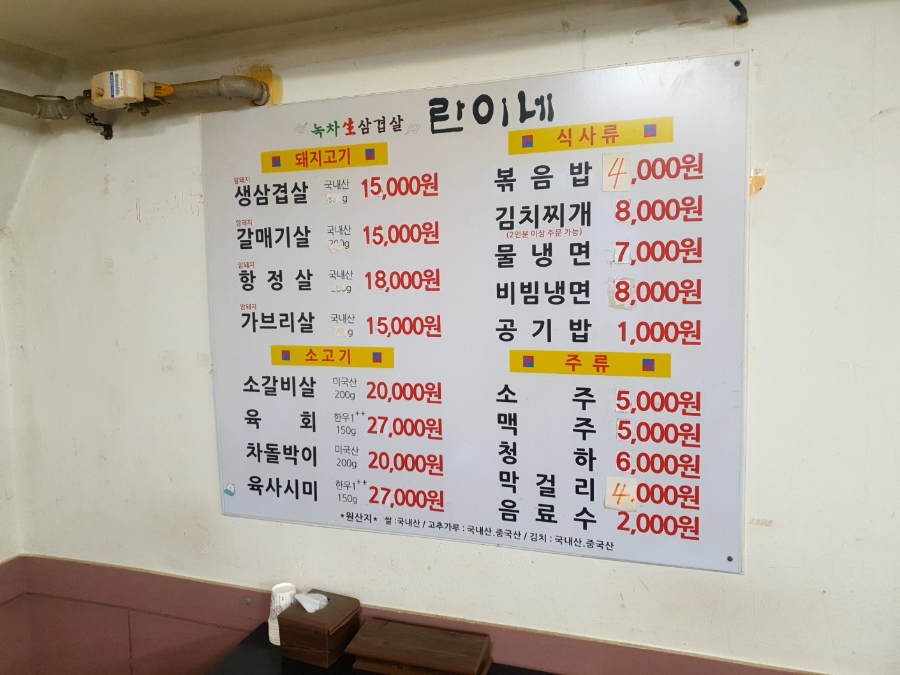 녹차生삼겹살 란이네
돼지고기
암돼지
생삼겹살 국내산 15,000원
암돼지
갈매기살 국내산 15,000원
암돼지
항정살 국내산 18,000원
암돼지
가브리살 국내산 g 15,000원
소고기
소갈비살 미국산 200g 20,000원
육회 한우1++ 150g 27,000원
차돌박이 미국산 200g 20,000원
육사시미 한우1++ 150g 27,000원
식사류
볶음밥 4,000원
김치찌개 8,000원
(2인분 이상 주문 가능)
물냉면 7,000원
비빔냉면 8,000원
공기밥 1,000원
주류
소주 5,000원
맥주 5,000원
청하 6,000원
막걸리 4,000원
음료수 2,000원
*원산지* 쌀:국내산 / 고추가루 : 국내산.중국산 / 김치 : 국내산.중국산